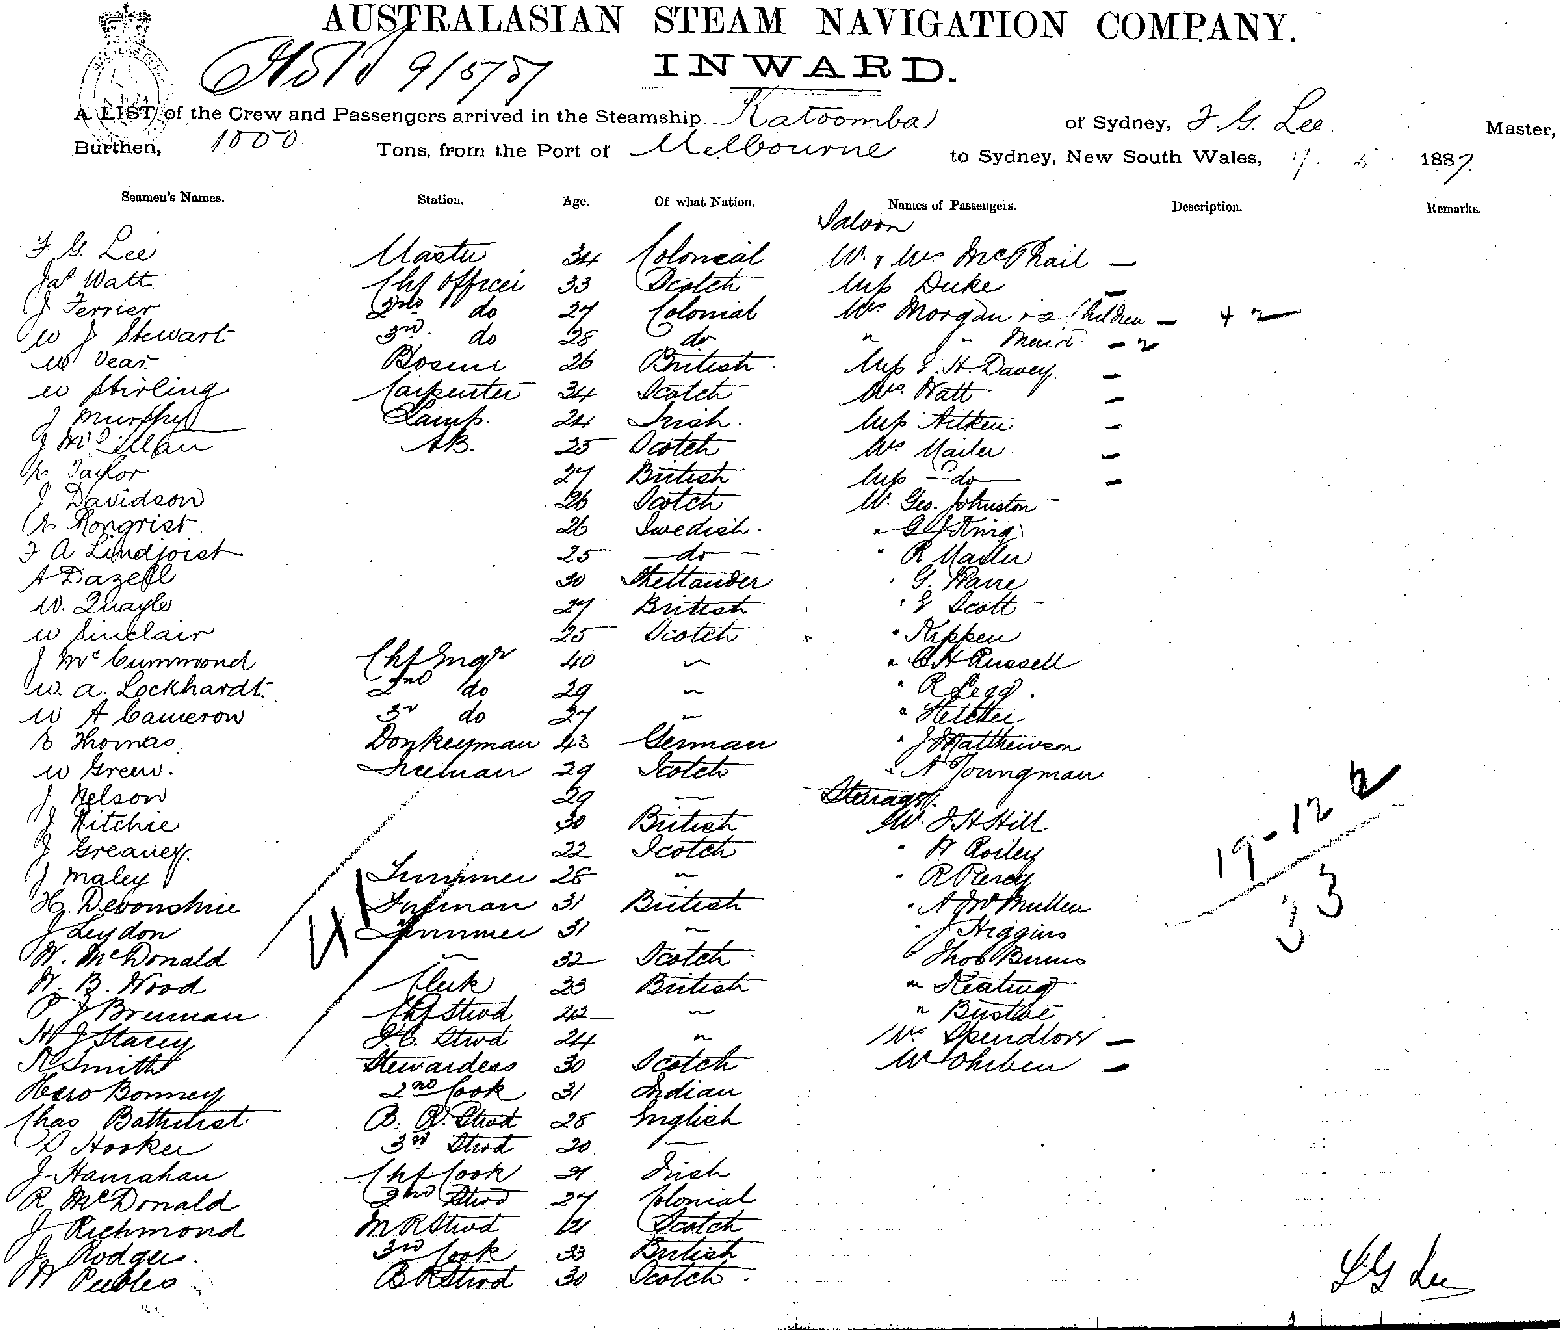 AUSTRALASIAN STEAM NAVIGATION COMPANY.
9/5/87
INWARD.
A LIST of the Crew and Passengers arrived in the Steamship Katoomba of Sydney, F. G. Lee Master,
Burthen, 1000 Tons, from the Port of Melbourne to Sydney, New South Wales, 5 1887.
Seamen's Names. Station. Age. Of what Nation. Names of Passengers. Description. Remarks.
Saloon
F G Lee Master 34 Colonial Mr & Mrs McPhail —
Jas Watt Chf Officer 33 Scotch Miss Duke —
J Ferrier 2nd do 27 Colonial Mrs Morgan & 2 Children —
W J Stewart 3rd do 28 do " " Maid —
W Vear Bosun 26 British Miss E. H. Davey —
W Stirling Carpenter 34 Scotch Mrs Watt —
J Murphy Lamp. 24 Irish. Miss Aitken —
J McLillan AB. 25 Scotch Mrs Mailer —
Taylor 27 British Miss — do — —
J Davidson 26 Scotch Mr Geo. Johnston
Rongrist 26 Swedish. " G J King
F A Lindjoist 25 — do — " R Mailer
A Dazell 30 Shetlander " G.
W. Quayle 27 British " E Scott
W Sinclair 25 Scotch " Kippen
J McCummond Chf Engr 40 " " C H Russell
W. A. Lockhardt 2nd do 29 " " R Legg.
W A Cameron 3r do 27 " " Fletcher
E Thomas Donkeyman 43 German " J Matthewson
W Green. Fireman 29 Scotch " A Youngman
J Nelson 29 " Steerage.
J Ritchie 30 British Mr J H Hill
J Greaney 22 Scotch " W Roiley
J Maley Trimmer 28 " " R Percy
H Devonshire Fireman 31 British " A J McMullen
J Leydon Trimmer 31 " " J Higgins
W. McDonald " 32 Scotch " Thos Burns
W. B. Wood Clerk 23 British " Keating
P J Brennan Chf Stwd 42 " "
H J Stacey F.C. Stwd 24 " Mrs Spendlove —
R Smith Stewardess 30 Scotch —
Bonney 2nd Cook 31 Indian
Chas Bathurst B. R. Stwd 28 English
D Hooker 3rd Stwd 20 —
J. Hanrahan Chf Cook Irish
R McDonald 2nd Stwd 27 Colonial
J Richmond M R Stwd 21 Scotch
J. Rodger. 3rd Cook 33 British
W Peebles B R Stwd 30 Scotch.
41
19 - 12 2
33
F G Lee